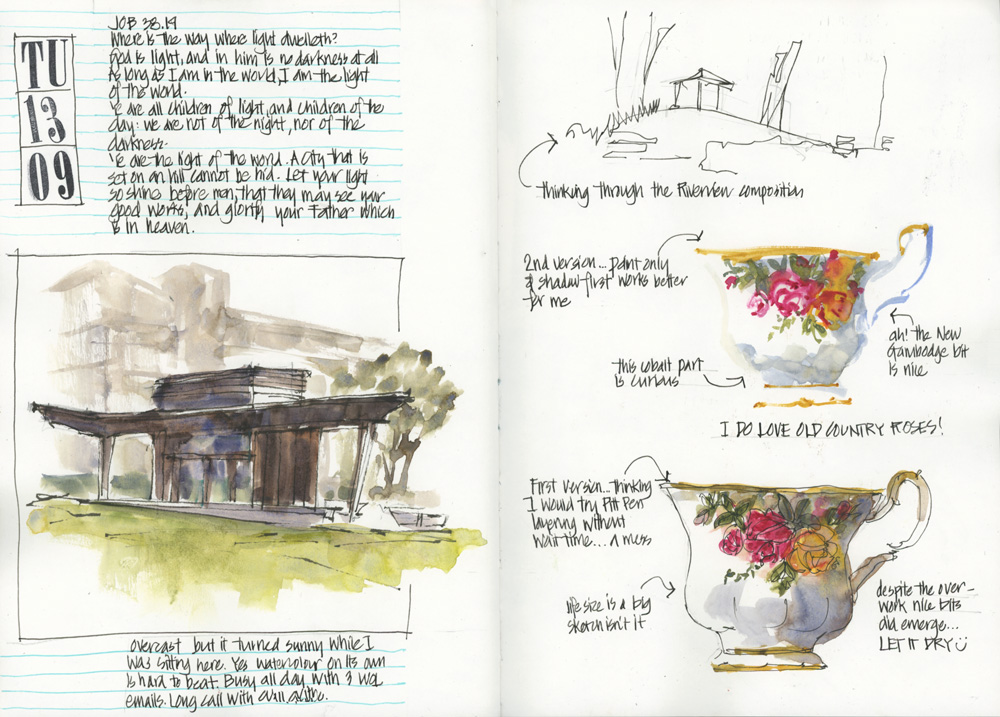 TU
13
09
JOB 38.19
Where is the way where light dwelleth?
God is light, and in him is no darkness at all
As long as I am in the world, I am the light
of the world.
Ye are all children of light, and children of the
day: we are not of the night, nor of the
darkness.
Ye are the light of the world. A city that is
set on an hill cannot be hid. Let your light
so shine before men, that they may see your
good works, and glorify your Father which
is in heaven.
overcast but it turned sunny while I
was sitting here. Yes watercolour on its own
is hard to beat. Busy all day with 3
emails. Long call with
thinking through the Riverview composition
2nd version... paint only
& shadow first works better
for me
ah! the New
Gambodge bit
is nice
this cobalt part
is curious
I DO LOVE OLD COUNTRY ROSES!
First version... thinking
I would try Pitt Pen
layering without
wait time... a mess
life size is a big
sketch isn't it
despite the over-
work nice bits
did emerge...
LET IT DRY